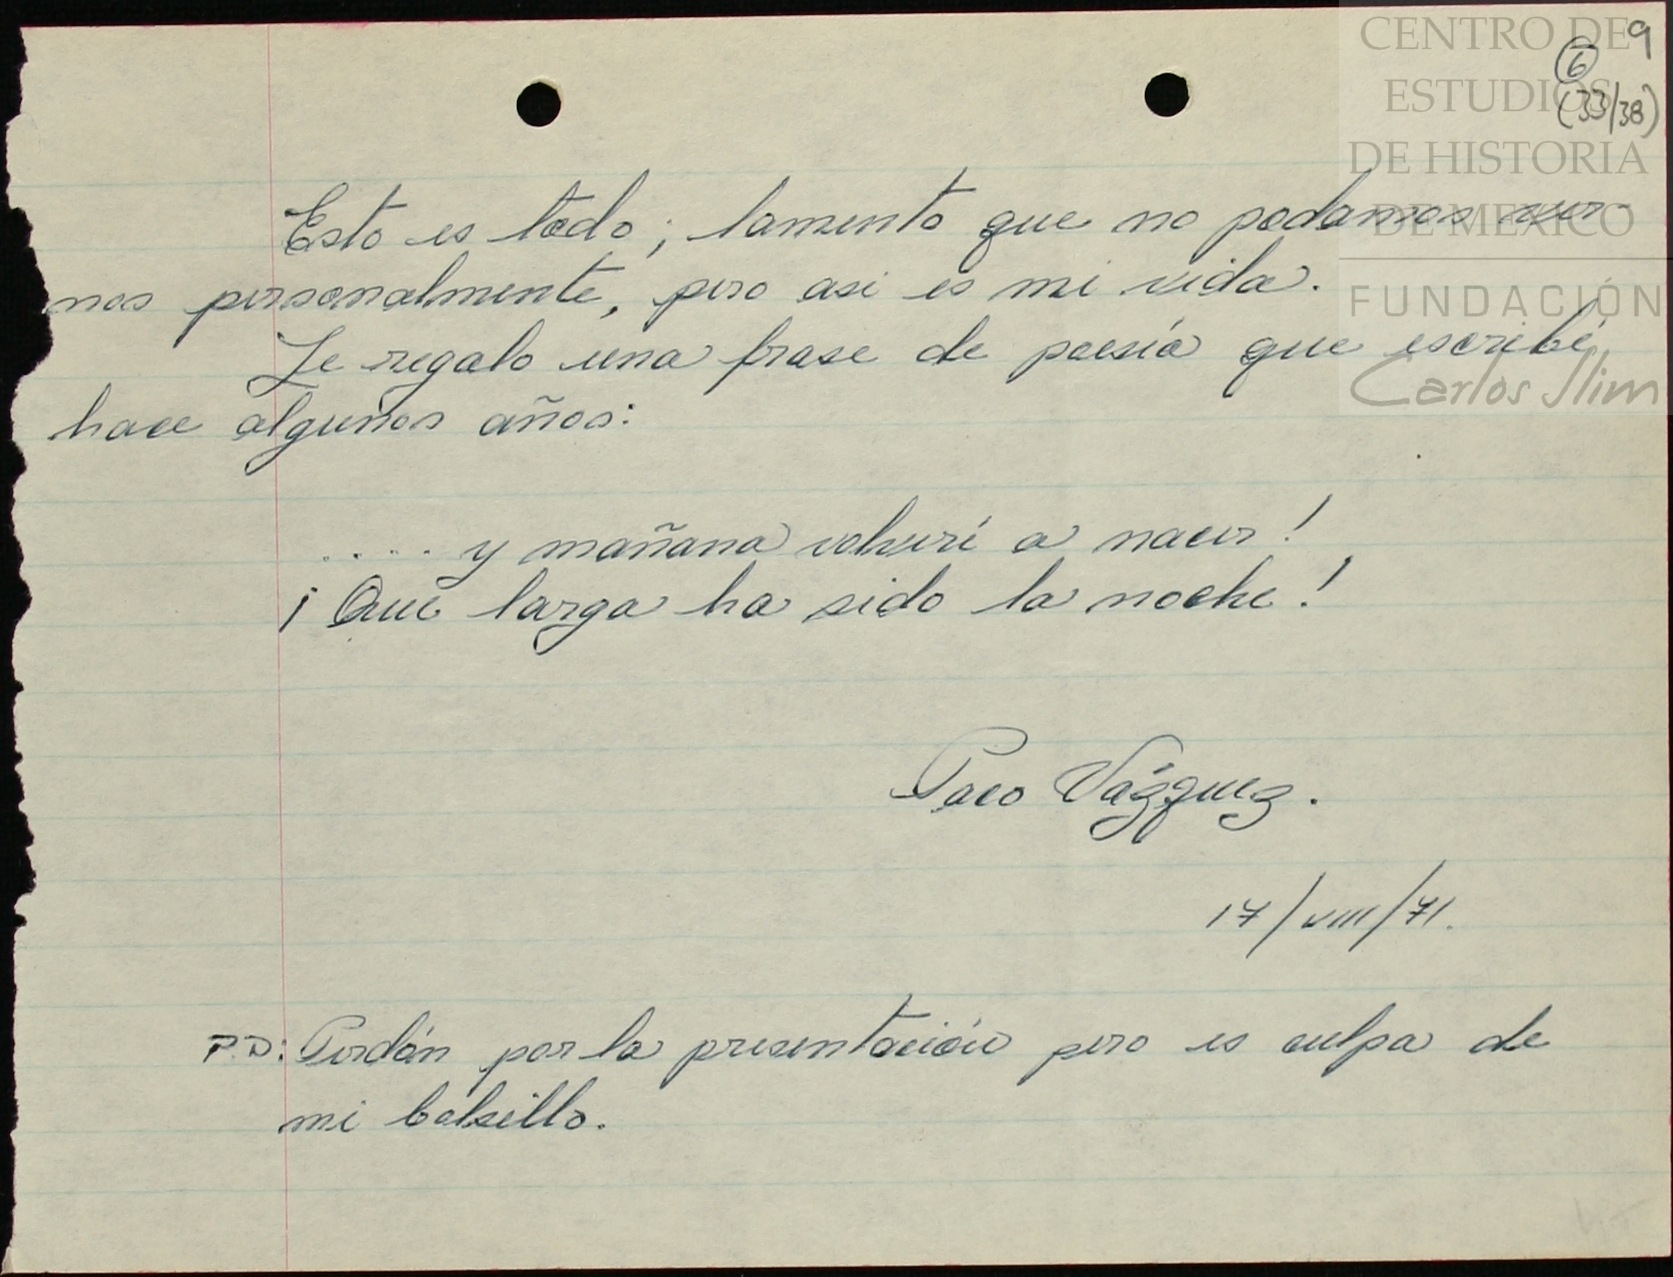 CENTRO DE
ESTUDIOS
DE HISTORIA
DE MÉXICO
FUNDACIÓN
Carlos Slim
9
6
(33/38)
Esto es todo; lamento que no podamos ver-
nos personalmente, pero asi es mi vida.
Le regalo una frase de poesía que escribí
hace algunos años:
..... y mañana volveré a nacer!
¡Que larga ha sido la noche!
Paco Vázquez.
17/VIII/71.
P.D: Perdón por la presentación pero es culpa de
mi bolsillo.